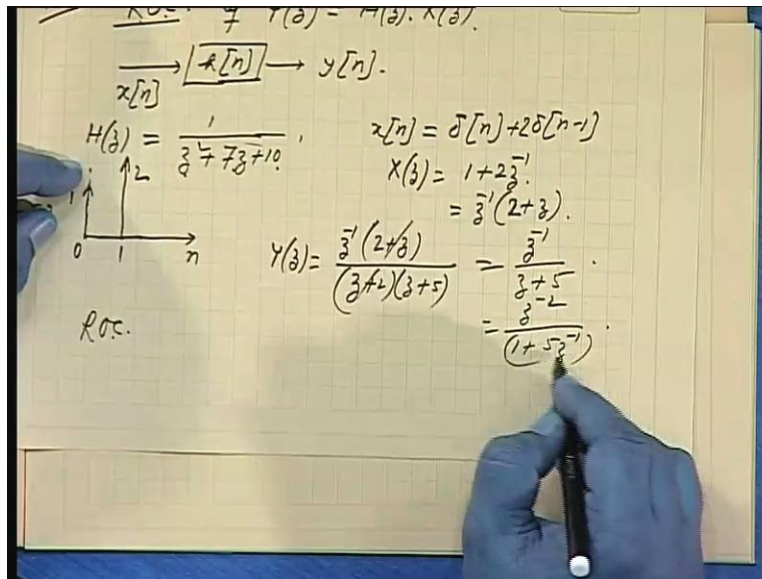 ROC. of Y(z) = H(z). X(z).
x[n] → h[n] → y[n].
H(z) = 1 / (z² + 7z + 10) , x[n] = δ[n] + 2δ[n-1]
X(z) = 1 + 2z⁻¹.
= z⁻¹(2+z).
1 2
0 1 n
Y(z) = z⁻¹(2+z) / (z+2)(z+5) = z⁻¹ / z+5 .
= z⁻² / (1 + 5z⁻¹) .
ROC.